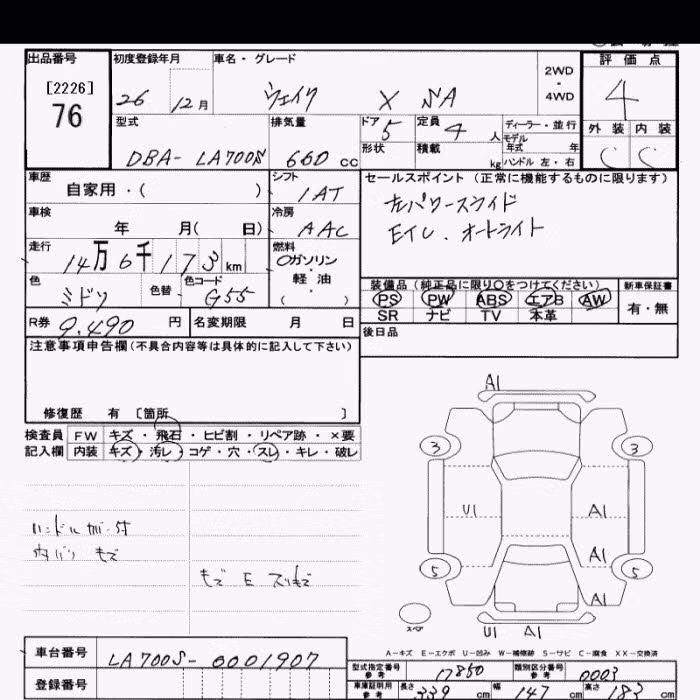 出品番号 初度登録年月 車名・グレード 評価点
[2226]
76
26 12月 ウェイク X SA 2WD・4WD 4
型式 排気量 ドア 5 定員 4人 ディーラー・並行 外装 内装
形状 積載 kg モデル年式 年
DBA- LA700S 660 cc ハンドル 左・右 C C
車歴 自家用・( ) シフト 1AT
セールスポイント(正常に機能するものに限ります)
車検 年 月( 日) 冷房 AAC
左パワースライド
ETC. オートライト
走行 14万6千173km 燃料 ガソリン・軽油( )
色 ミドリ 色替 色コード G55
装備品(純正品に限り○をつけてください) 新車保証書
PS PW ABS エアB AW 有・無
SR ナビ TV 本革
R券 9,490 円 名変期限 月 日
後日品
注意事項申告欄(不具合内容等は具体的に記入して下さい)
修復歴 有 〔箇所 〕
検査員記入欄
FW キズ・飛石・ヒビ割・リペア跡・×要
内装 キズ・汚レ・コゲ・穴・スレ・キレ・破レ
A1
3 3
U1 A1
A1
5 5
A1
スペア
U1 A1
内バリ キズ
A-キズ E-エクボ U-凹み W-補修跡 S-サビ C-腐食 XX-交換済
車台番号 LA700S-0001907
登録番号
型式指定番号 参考 17850 類別区分番号 参考 0003
車庫証明用 参考 長さ 339 cm 幅 147 cm 高さ 183 cm